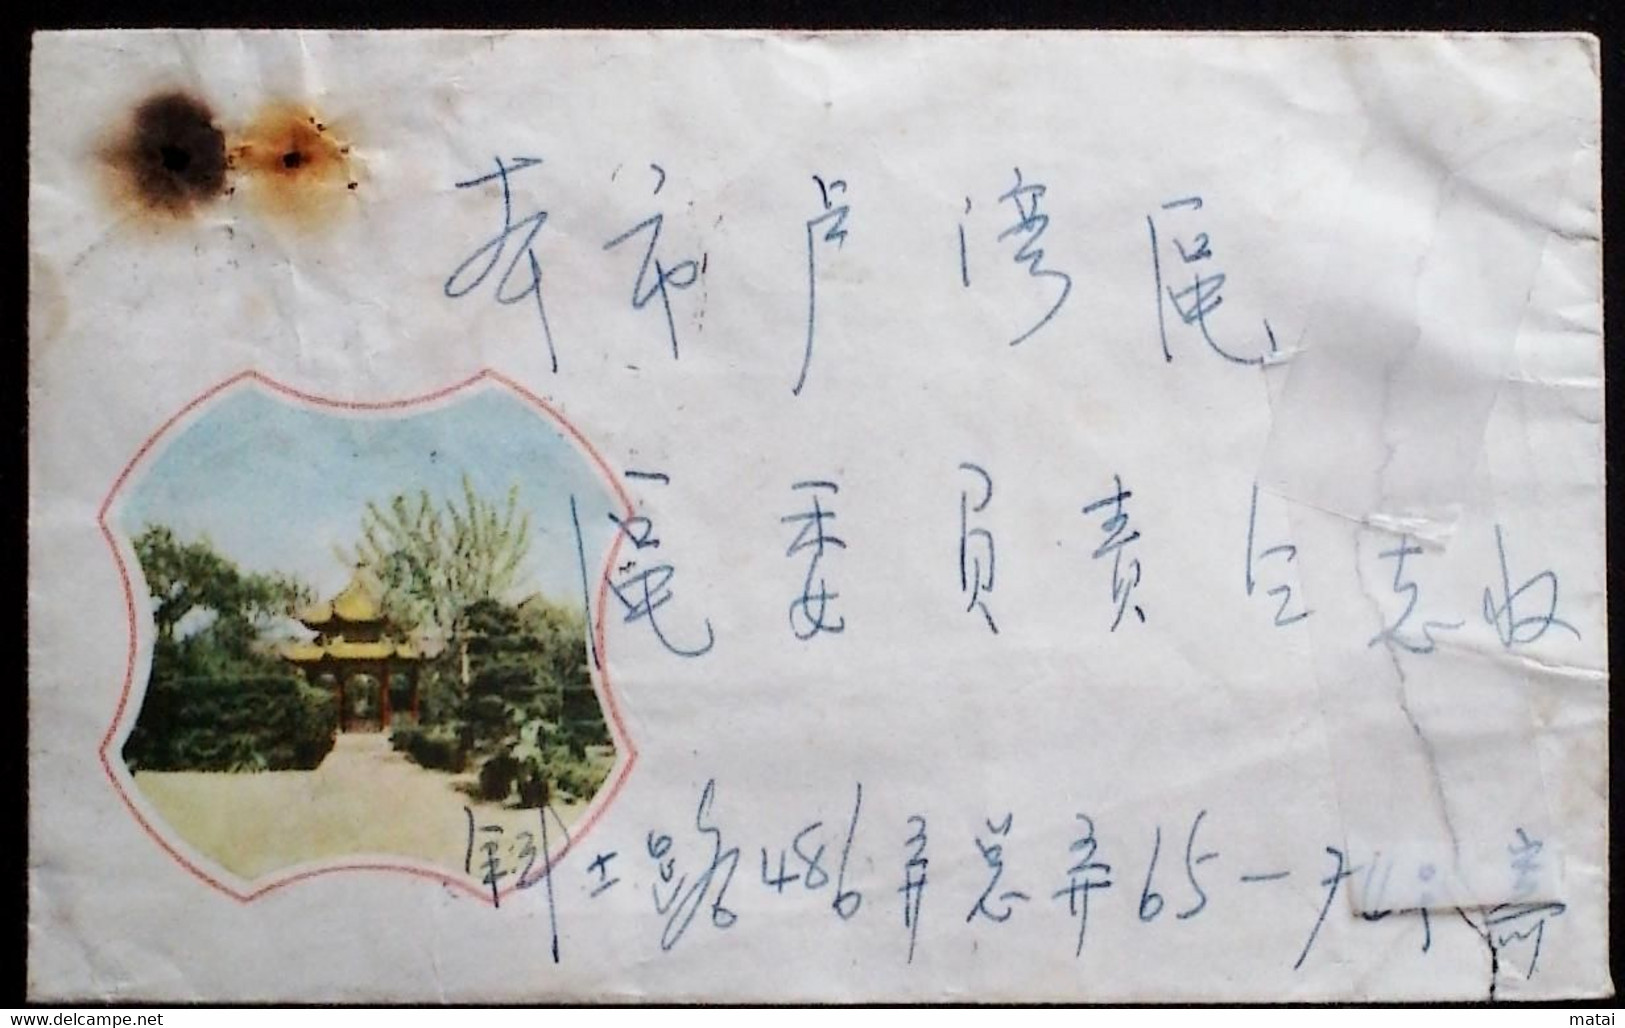 本市卢湾區
區委員責同志收
斜土路486弄总弄65-
寄
www.delcampe.net
matai